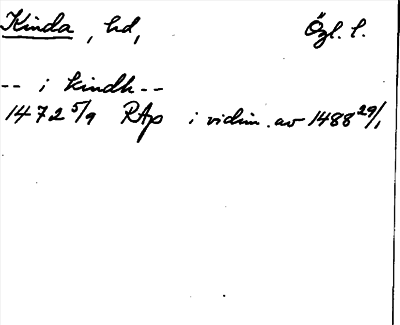 Kinda, hd, Ögl. l.
-- i kindh --
1472 5/9 RAp i vidim. av 1488 29/1